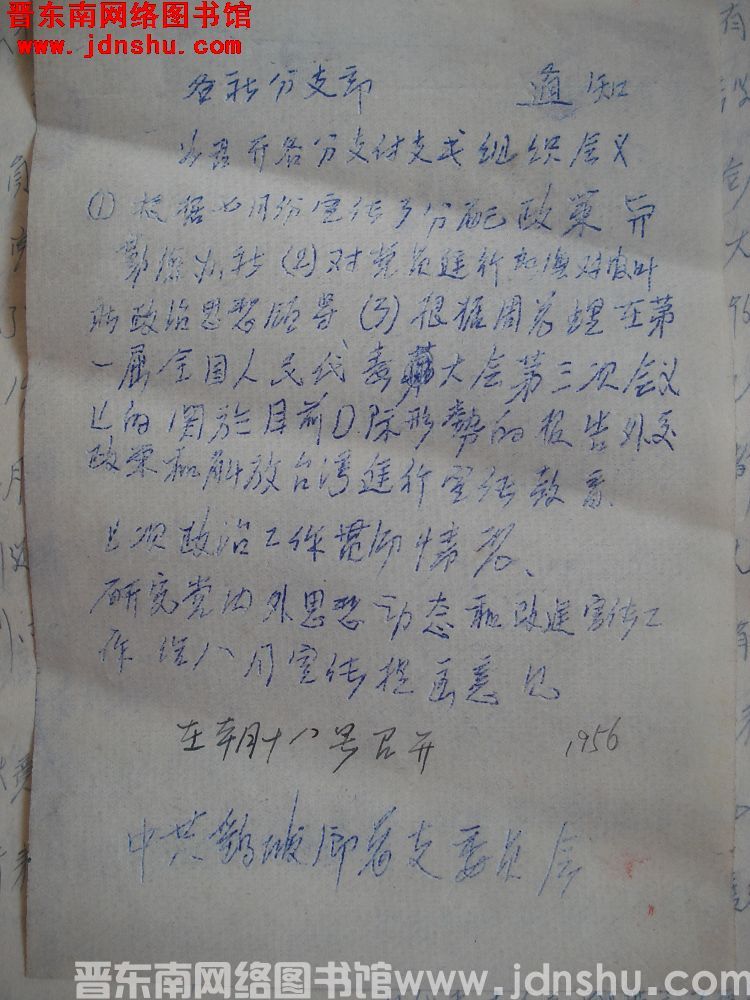 晋东南网络图书馆
www.jdnshu.com
各社分支部 通知
为召开各分支付支或组织会议
① 根据七月份宣传多分配政策
勤俭办社 (2) 对党员进行
政治思想领导 (3) 根据周总理在第
一届全国人民代表大会第三次会议
上的关于目前国际形势的报告外交
政策和解放台湾进行宣传教育
上次政治工作贯彻情况、
研究党内外思想动态和改进宣传工
作 八月宣传提意见
在本月十八号召开 1956
中共 总支委员会
晋东南网络图书馆www.jdnshu.com